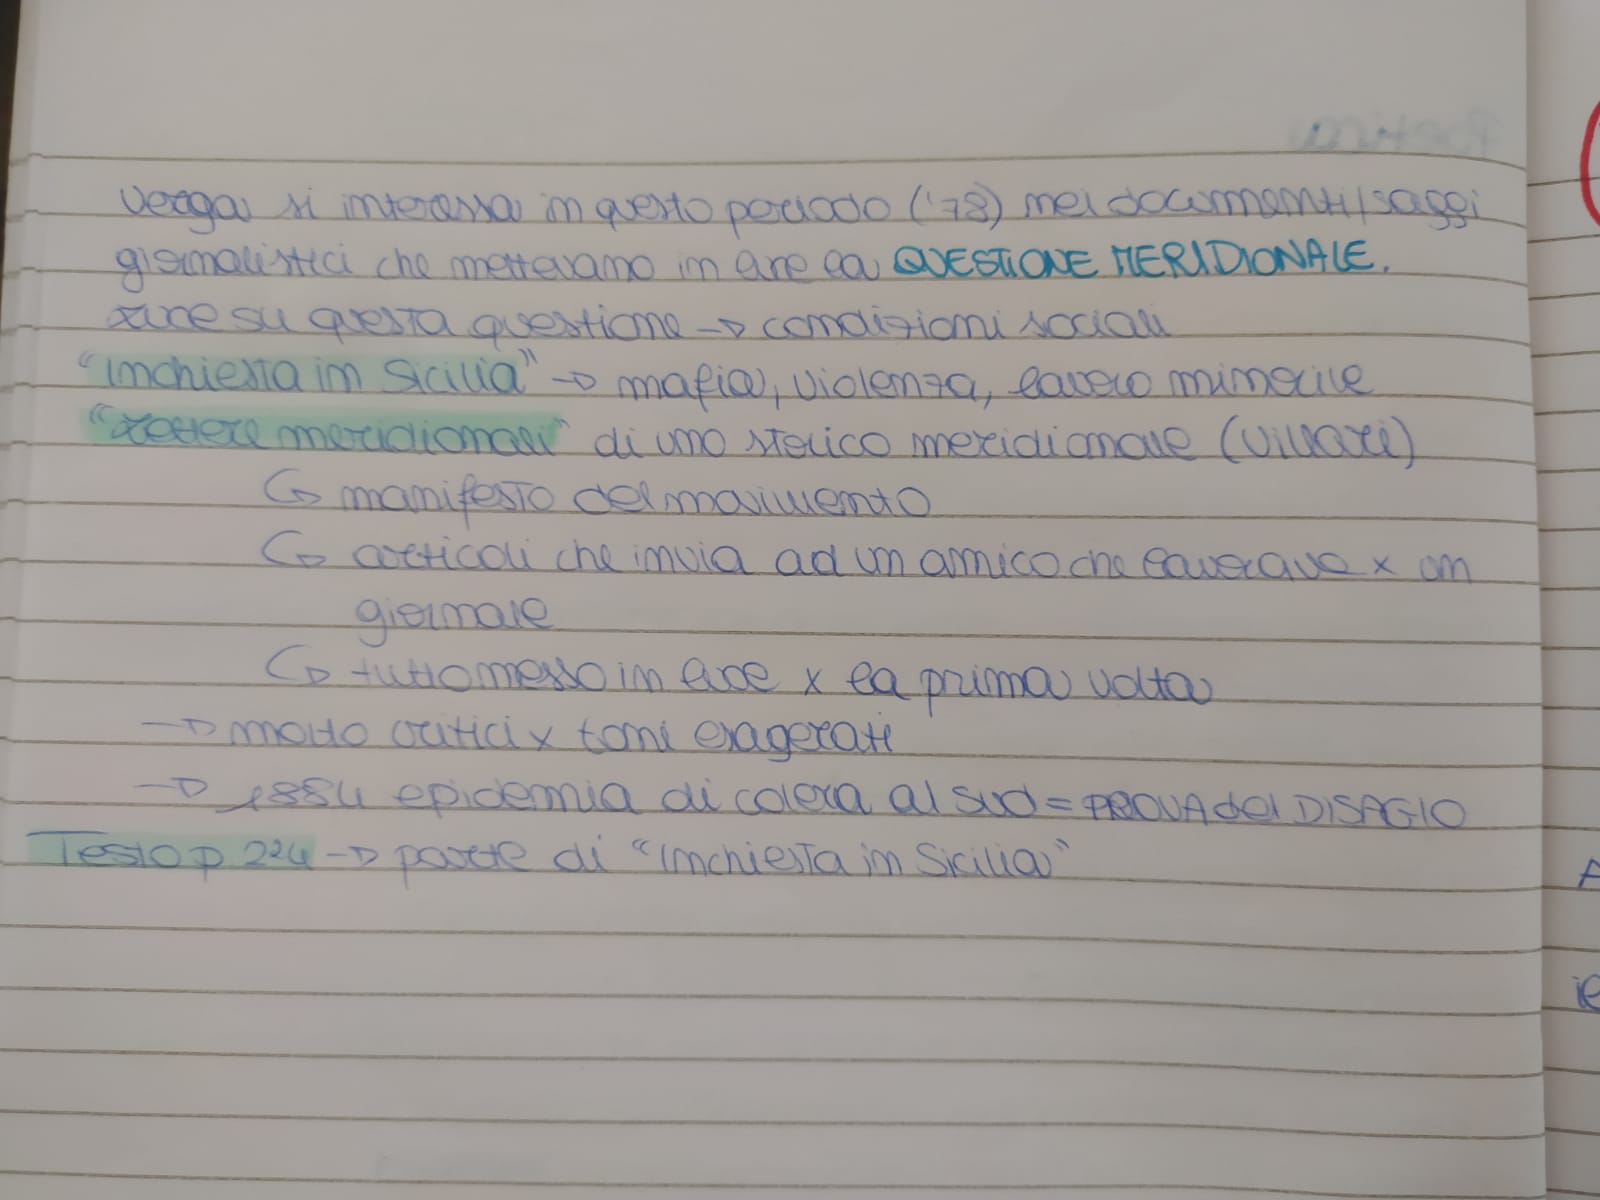 Verga si interessa in questo periodo ('78) nei documenti/saggi
giornalistici che mettevano in luce la QUESTIONE MERIDIONALE.
Luce su questa questione → condizioni sociali
"Inchiesta in Sicilia" → mafia, violenza, lavoro minorile
"Lettere meridionali" di uno storico meridionale (Villari)
↳ manifesto del movimento
↳ articoli che invia ad un amico che lavorava x un
giornale
↳ tutto messo in luce x la prima volta
→ molto critici x toni esagerati
→ 1884 epidemia di colera al sud = PROVA del DISAGIO
Testo p 224 → parte di "Inchiesta in Sicilia"